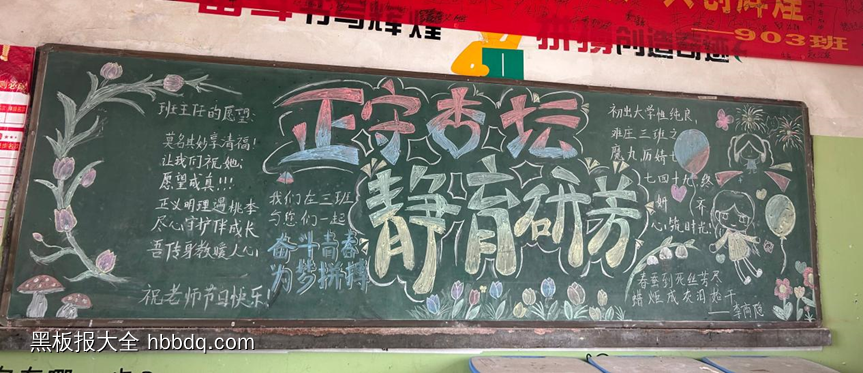 书写辉煌
拼搏创造奇迹
903班
班主任的愿望:
莫名其妙享清福!
让我们祝她:
愿望成真!!!
正义明理遇桃李
尽心守护伴成长
言传身教暖人心
祝老师节日快乐!
正守杏坛
静育研芳
我们在三班
与您们一起
奋斗青春
为梦拼搏
初出大学性纯良,
难在三班之
魔丸历
七四十九 终
妍 齐
心 筑时光!
春蚕到死丝方尽
蜡炬成灰泪始干
——李商隐
黑板报大全 hbbdq.com